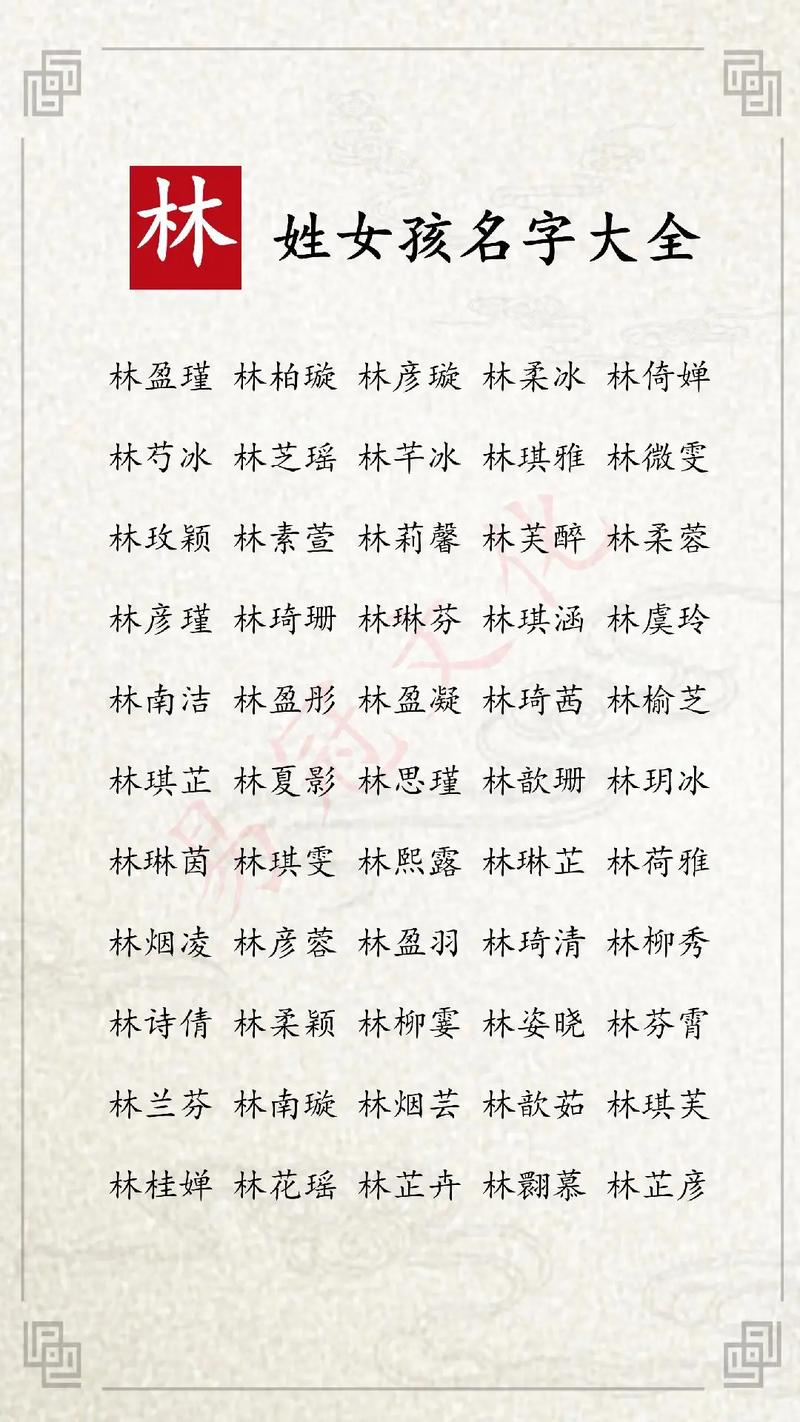 林 姓女孩名字大全
林盈瑾 林柏璇 林彦璇 林柔冰 林倚婵
林芍冰 林芝瑶 林芊冰 林琪雅 林微雯
林玫颖 林素萱 林莉馨 林芙醉 林柔蓉
林彦瑾 林琦珊 林琳芬 林琪涵 林虞玲
林南洁 林盈彤 林盈凝 林琦茜 林榆芝
林琪芷 林夏影 林思瑾 林歆珊 林玥冰
林琳茵 林琪雯 林熙露 林琳芷 林荷雅
林烟凌 林彦蓉 林盈羽 林琦清 林柳秀
林诗倩 林柔颖 林柳霎 林姿晓 林芬霄
林兰芬 林南璇 林烟芸 林歆茹 林琪芙
林桂婵 林花瑶 林芷卉 林翾慕 林芷彦
易冠文化